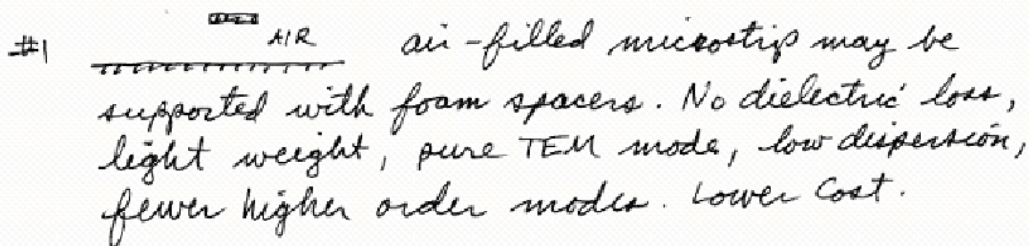 #1 AIR air-filled microstrip may be
supported with foam spacers. No dielectric loss,
light weight, pure TEM mode, low dispersion,
fewer higher order modes. Lower Cost.